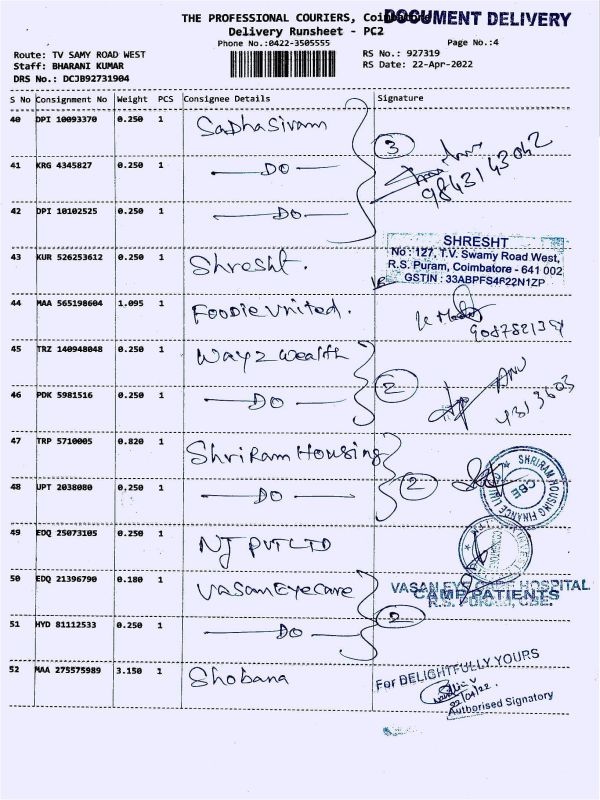 THE PROFESSIONAL COURIERS, Coimbatore
DOCUMENT DELIVERY
Delivery Runsheet - PC2
Phone No.:0422-3505555
Page No.:4
Route: TV SAMY ROAD WEST
RS No.: 927319
Staff: BHARANI KUMAR
RS Date: 22-Apr-2022
DRS No.: DCJB92731904
S No Consignment No Weight PCS Consignee Details Signature
40 DPI 10093370 0.250 1 Sadhasivam
3
9843143042
41 KRG 4345827 0.250 1 DO
42 DPI 10102525 0.250 1 DO
43 KUR 526253612 0.250 1 Shresht.
SHRESHT
No : 127, T.V. Swamy Road West,
R.S. Puram, Coimbatore - 641 002
GSTIN : 33ABPFS4622N1ZP
44 MAA 565198604 1.095 1 Foodie United.
45 TRZ 140948048 0.250 1 Way2Wealth
2
ANU
4313603
46 PDK 5981516 0.250 1 DO
47 TRP 5710005 0.820 1 Shriram Housing
2
SHRIRAM HOUSING FINANCE LIMITED
CBE
48 UPT 2038080 0.250 1 DO
49 EDQ 25073105 0.250 1 NJ PVT LTD
50 EDQ 21396790 0.180 1 Vasan Eye Care
VASAN EYE CARE HOSPITAL
CAMP PATIENTS
R.S. PURAM, CBE.
2
51 HYD 81112533 0.250 1 DO
52 MAA 275575989 3.150 1 Shobana
For DELIGHTFULLY YOURS
22/04/22.
Authorised Signatory